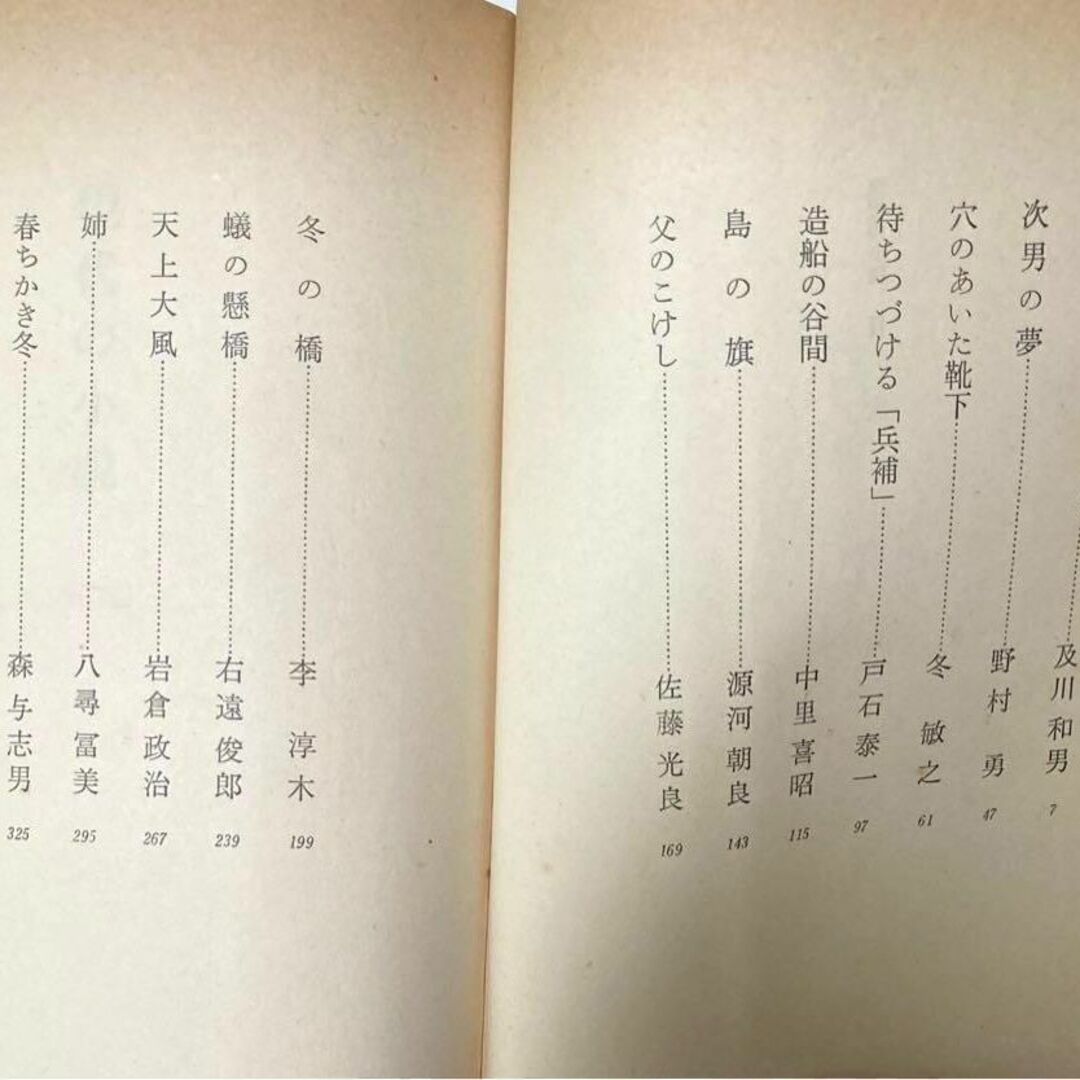 及川和男 7
次男の夢 野村勇 47
穴のあいた靴下 冬敏之 61
待ちつづける「兵補」 戸石泰一 97
造船の谷間 中里喜昭 115
島の旗 源河朝良 143
父のこけし 佐藤光良 169
冬の橋 李淳木 199
蟻の懸橋 右遠俊郎 239
天上大風 岩倉政治 267
姉 八尋冨美 295
春ちかき冬 森与志男 325